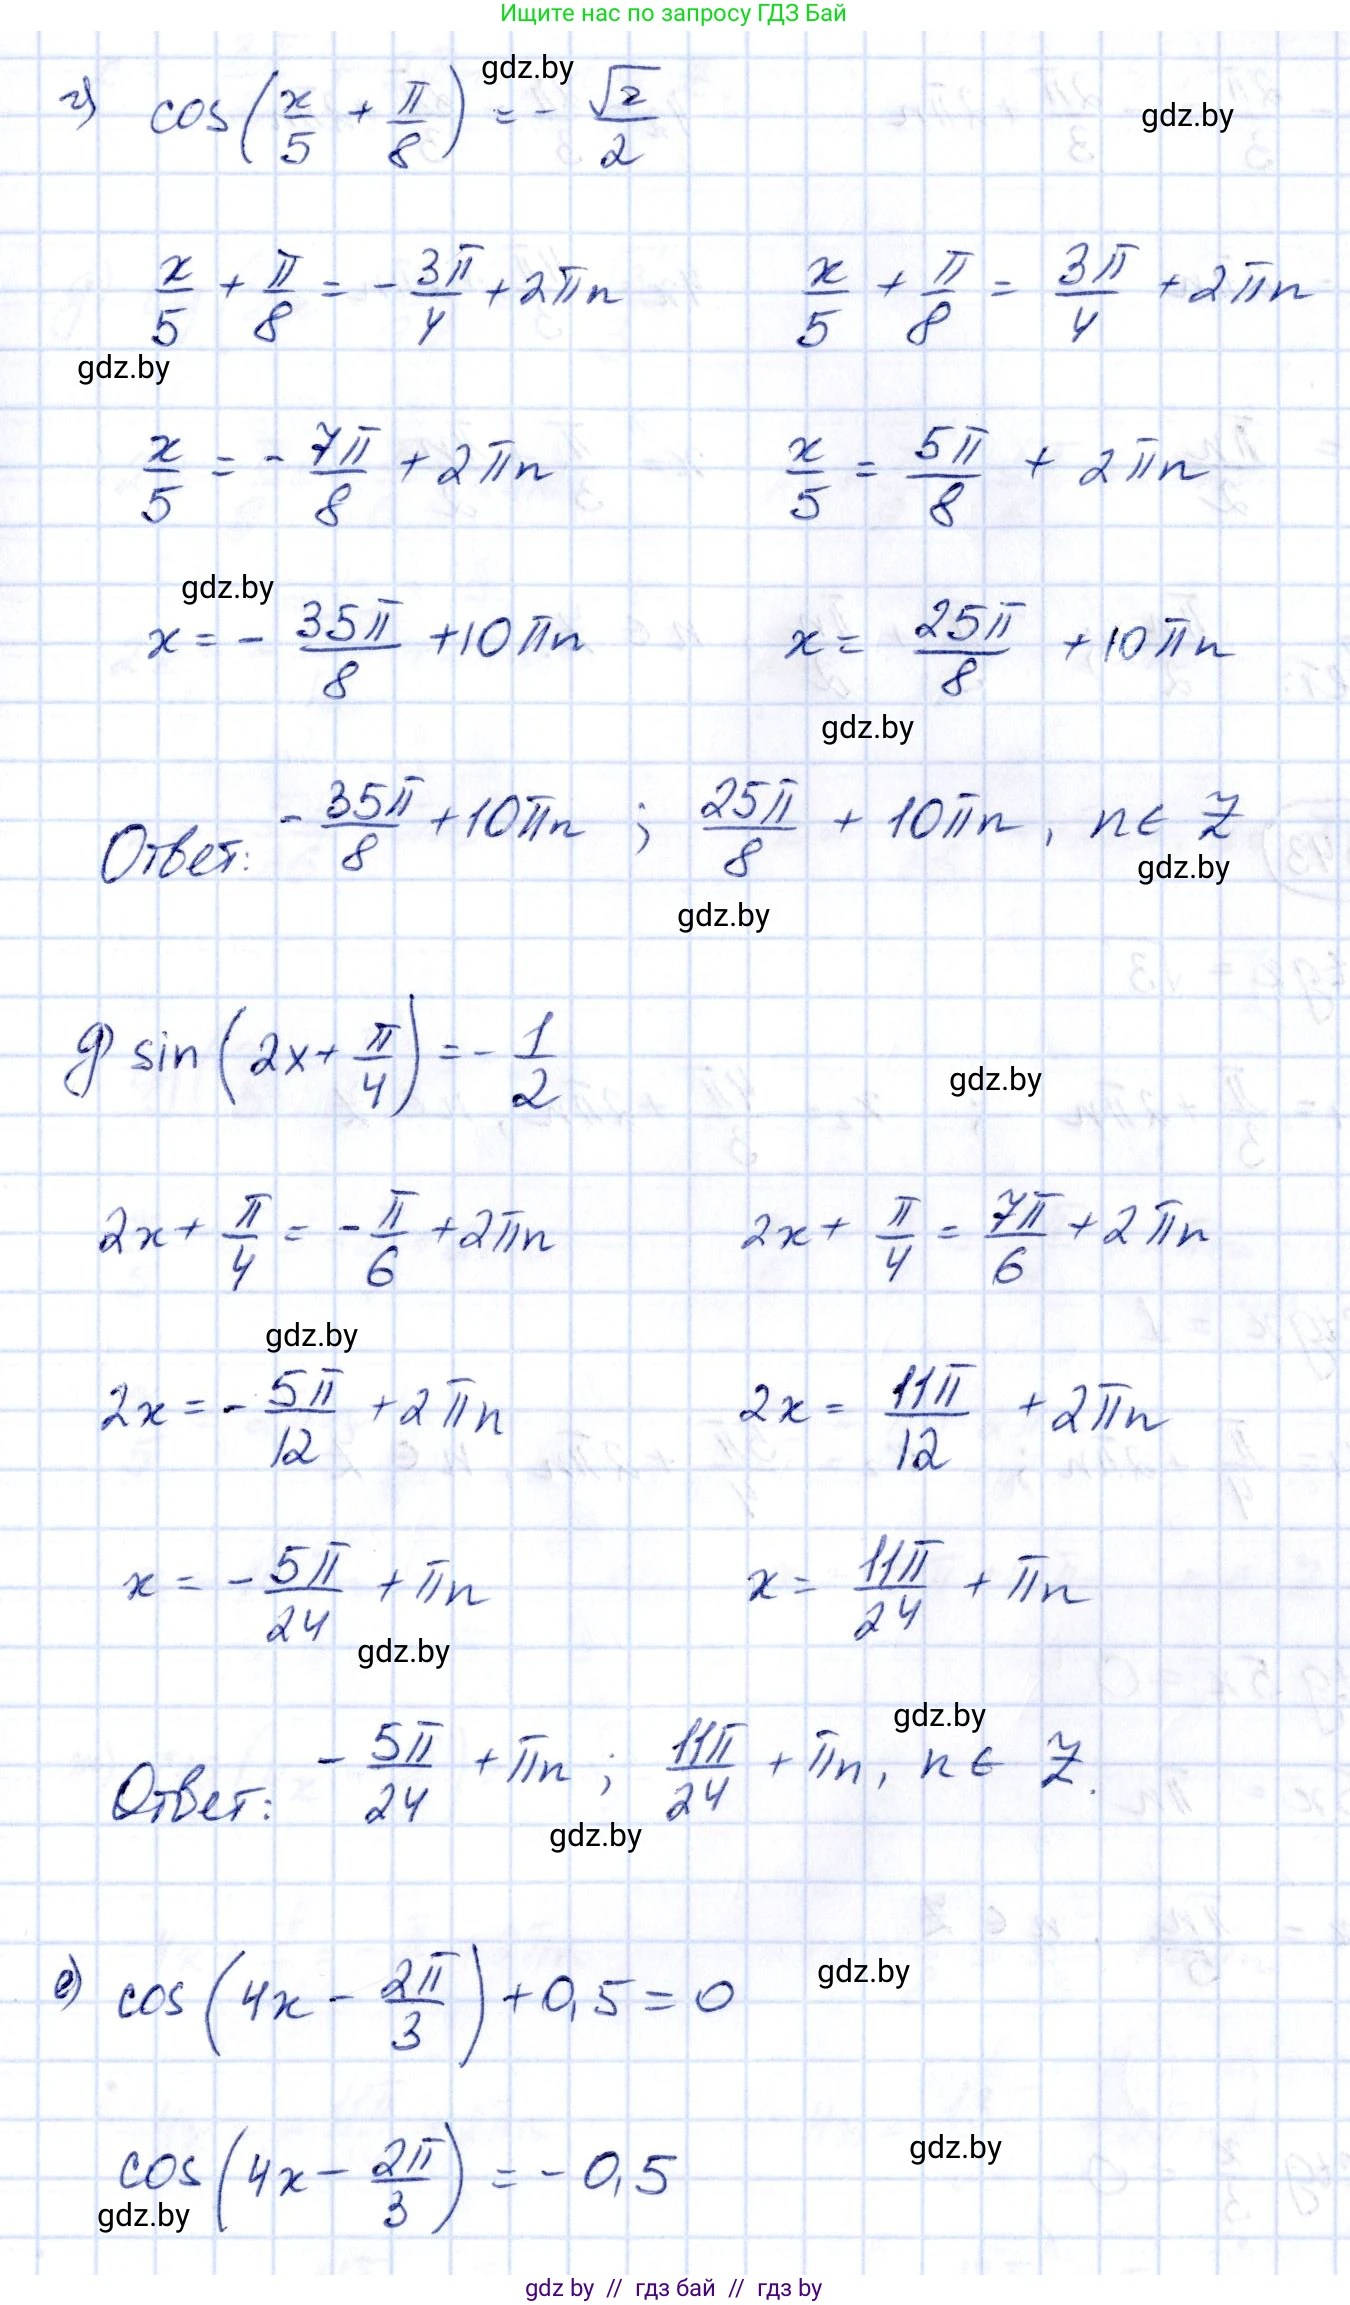 Ищите нас по запросу ГДЗ Бай
gdz.by
г) cos(x/5 + π/8) = - √2/2
gdz.by
x/5 + π/8 = - 3π/4 + 2πn    x/5 + π/8 = 3π/4 + 2πn
gdz.by
x/5 = - 7π/8 + 2πn    x/5 = 5π/8 + 2πn
gdz.by
x = - 35π/8 + 10πn    x = 25π/8 + 10πn
gdz.by
Ответ: - 35π/8 + 10πn ; 25π/8 + 10πn, n ∈ Z
gdz.by
gdz.by
д) sin(2x + π/4) = - 1/2
gdz.by
2x + π/4 = - π/6 + 2πn    2x + π/4 = 7π/6 + 2πn
gdz.by
2x = - 5π/12 + 2πn    2x = 11π/12 + 2πn
x = - 5π/24 + πn    x = 11π/24 + πn
gdz.by
gdz.by
Ответ: - 5π/24 + πn ; 11π/24 + πn, n ∈ Z.
gdz.by
е) cos(4x - 2π/3) + 0,5 = 0
gdz.by
cos(4x - 2π/3) = - 0,5
gdz.by
gdz.by
gdz by // гдз бай // гдз by